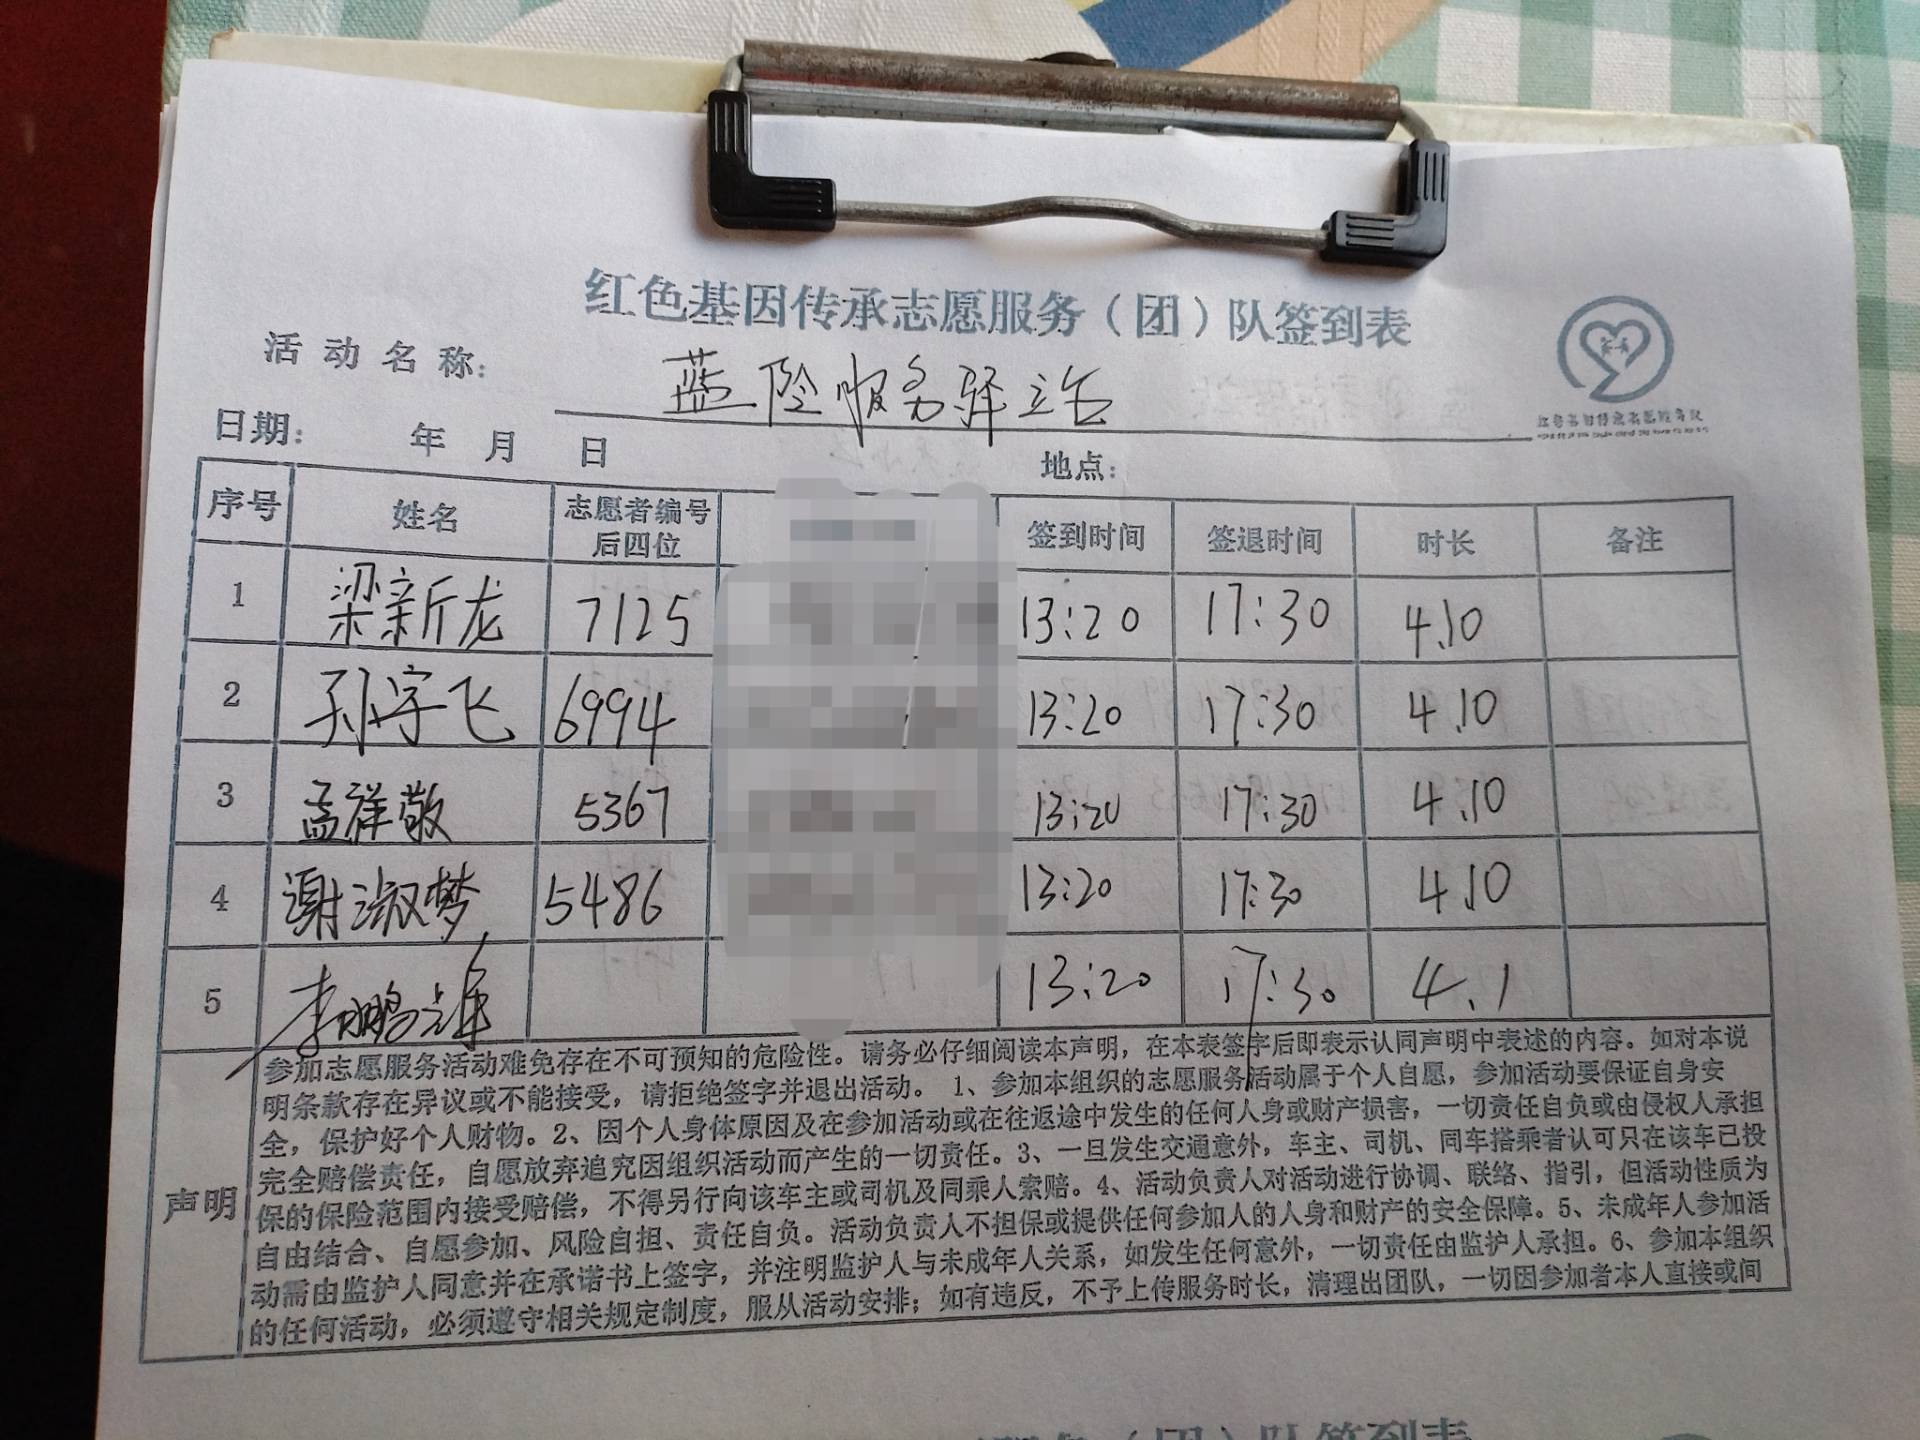 红色基因传承志愿服务（团）队签到表
活动名称：蓝险服务驿站
日期： 年 月 日 地点：
序号 姓名 志愿者编号后四位 签到时间 签退时间 时长 备注
1 梁新龙 7125 13:20 17:30 4.10
2 孙宇飞 6994 13:20 17:30 4.10
3 孟祥敬 5367 13:20 17:30 4.10
4 谢淑梦 5486 13:20 17:30 4.10
5 李鹏 13:20 17:30 4.1
声明
参加志愿服务活动难免存在不可预知的危险性。请务必仔细阅读本声明，在本表签字后即表示认同声明中表述的内容。如对本说
明条款存在异议或不能接受，请拒绝签字并退出活动。 1、参加本组织的志愿服务活动属于个人自愿，参加活动要保证自身安
全，保护好个人财物。2、因个人身体原因及在参加活动或在往返途中发生的任何人身或财产损害，一切责任自负或由侵权人承担
完全赔偿责任，自愿放弃追究因组织活动而产生的一切责任。3、一旦发生交通意外，车主、司机、同车搭乘者认可只在该车已投
保的保险范围内接受赔偿，不得另行向该车主或司机及同乘人索赔。4、活动负责人对活动进行协调、联络、指引，但活动性质为
自由结合、自愿参加、风险自担、责任自负。活动负责人不担保或提供任何参加人的人身和财产的安全保障。5、未成年人参加活
动需由监护人同意并在承诺书上签字，并注明监护人与未成年人关系，如发生任何意外，一切责任由监护人承担。6、参加本组织
的任何活动，必须遵守相关规定制度，服从活动安排；如有违反，不予上传服务时长，清理出团队，一切因参加者本人直接或间
（团）队签到表